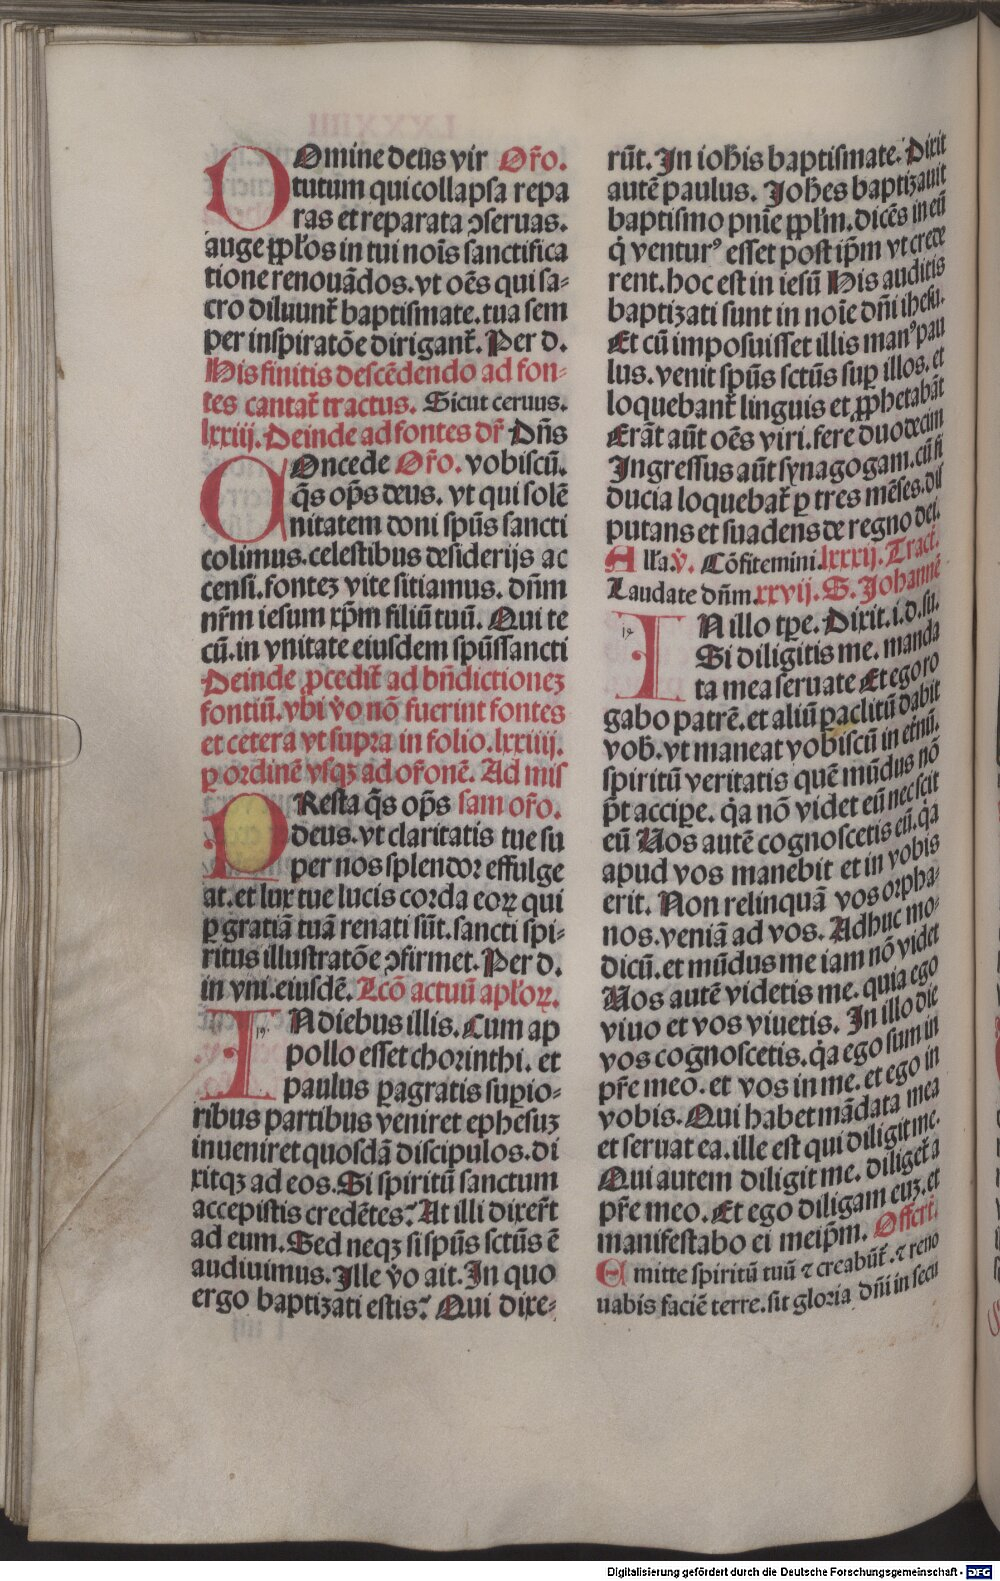 DOmine deus vir Or̃o.
tutum qui collapsa repa
ras et reparata ꝯseruas.
auge ꝓpłos in tui noīs sanctifica
tione renouādos. vt oēs qui sa-
cro diluunt̃ baptismate. tua sem
per inspiratōe dirigant̃. Per d.
His finitis descēdendo ad fon-
tes cantat̃ tractus. Sicut ceruus.
lxxiij. Deinde ad fontes dr̃ Dn̄s
COncede Or̃o. vobiscū.
q̄s op̄s deus. vt qui solē
nitatem doni sp̄us sancti
colimus. celestibus desiderijs ac
censi. fontez vite sitiamus. dn̄m
nr̄m iesum xp̄m filiū tuū. Qui te
cū. in vnitate eiusdem sp̄ussancti
Deinde ꝓcedit̃ ad bn̄dictionez
fontiū. vbi v̊o nō fuerint fontes
et cetera vt supra in folio. lxxiiij.
ꝑ ordinē vsqꝫ ad or̃onē. Ad mis
PResta q̄s op̄s sam or̃o.
deus. vt claritatis tue su
per nos splendor effulge
at. et lux tue lucis corda eoꝝ qui
ꝑ gratiā tuā renati sūt. sancti spi-
ritus illustratōe ꝯfirmet. Per d.
in vni. eiusdē. Lcō actuū apłoꝝ.
IN diebus illis. Cum ap
pollo esset chorinthi. et
paulus ꝑagratis supio-
ribus partibus veniret ephesuz
inueniret quosdā discipulos. di
xitqꝫ ad eos. Si spiritū sanctum
accepistis credētes? At illi dixer̃t
ad eum. Sed neqꝫ si sp̄us sctūs ē
audiuimus. Ille v̊o ait. In quo
ergo baptizati estis? Qui dixe-
rūt. In ioh̄is baptismate. Dixit
autē paulus. Joh̄es baptizauit
baptismo pnīe ꝓpłm. dicēs in eū
q̇ venturꝰ esset post ip̄m vt crede
rent. hoc est in iesū His auditis
baptizati sunt in noīe dn̄i ihesu.
Et cū imposuisset illis manꝰ pau
lus. venit sp̄us sctūs suꝑ illos. et
loquebant̃ linguis et ꝓphetabāt
Erāt aūt oēs viri. fere duodecim
Ingressus aūt synagogam. cū fi
ducia loquebat̃ ꝑ tres mēses. dis
putans et suadens de regno dei.
Ałła. v̊. Cōfitemini. lxxxij. Tract̃.
Laudate dn̄m. xxvij. S. Johannē
IN illo tꝑe. Dixit. i. d. su.
Si diligitis me. manda
ta mea seruate Et ego ro
gabo patrē. et aliū ꝑaclitū dabit
vob̄. vt maneat vobiscū in et̄nū.
spiritū veritatis quē mūdus nō
p̄t accipe. q̇a nō videt eū nec scit
eū Uos autē cognoscetis eū. q̇a
apud vos manebit et in vobis
erit. Non relinquā vos orpha-
nos. veniā ad vos. Adhuc mo-
dicū. et mūdus me iam nō videt
Uos autē videtis me. quia ego
viuo et vos viuetis. In illo die
vos cognoscetis. q̇a ego sum in
pr̄e meo. et vos in me. et ego in
vobis. Qui habet mādata mea
et seruat ea. ille est qui diligit me.
Qui autem diligit me. diliget̃ a
pr̄e meo. Et ego diligam euz. et
manifestabo ei meip̄m. Offert̃.
Emitte spiritū tuū ⁊ creabūt̃. ⁊ reno
uabis faciē terre. sit gloria dn̄i in secu
Digitalisierung gefördert durch die Deutsche Forschungsgemeinschaft - DFG